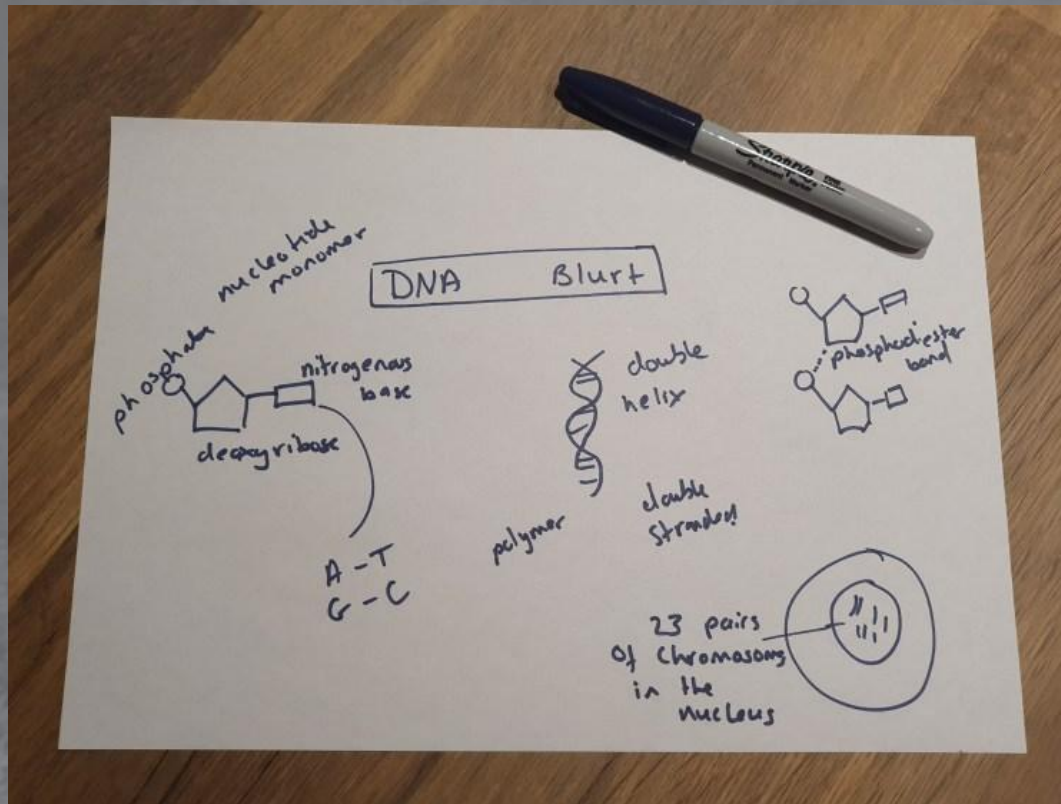 DNA Blurt
nucleotide
monomer
phosphate
nitrogenous
base
deoxyribose
A - T
G - C
double
helix
polymer
double
stranded
phosphodiester
bond
23 pairs
of chromosomes
in the
nucleus
Sharpie